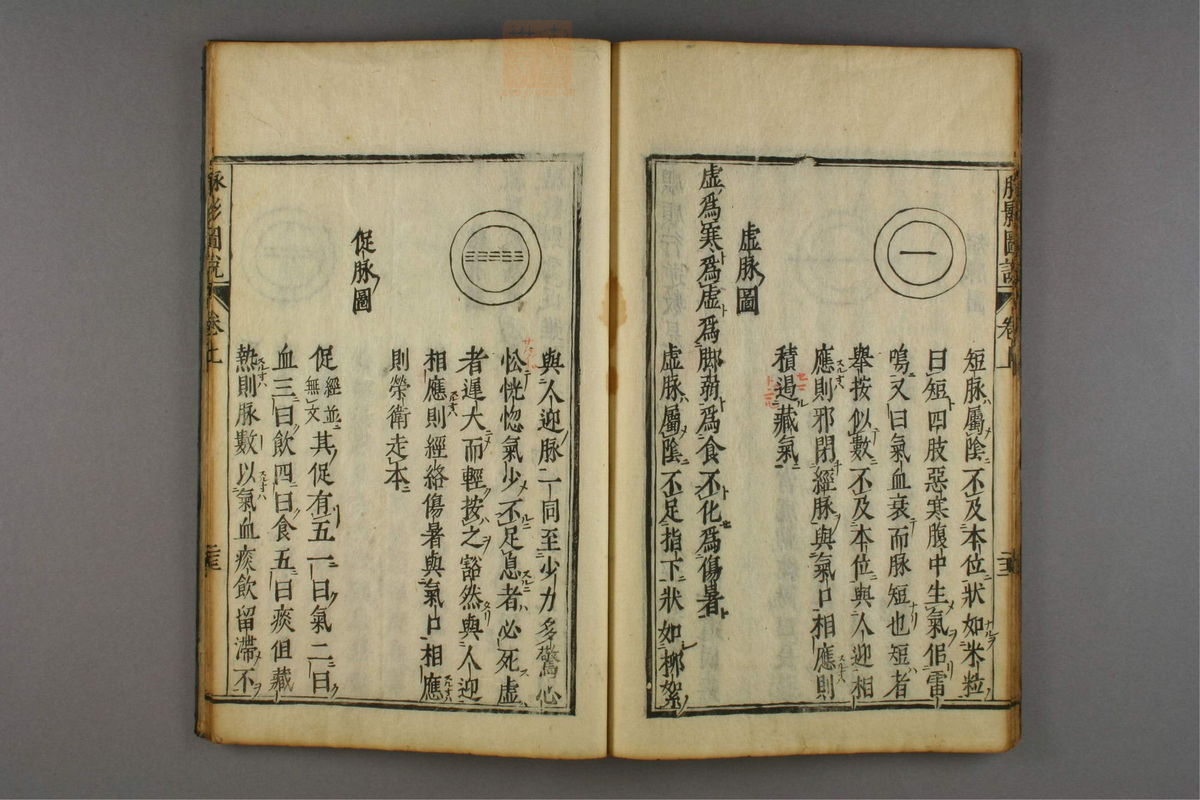 脉影圖說
卷上
短脉屬陰不及本位狀如米粒
曰短四肢惡寒腹中生氣佀雷
鳴又曰氣血衰而脉短也短者
舉按似數不及本位與人迎相
應則邪閉經脉與氣口相應則
積遏藏氣
虚脉圖
虚爲寒爲虚爲脚弱爲食不化爲傷暑
虚脉屬陰不足指下狀如柳絮
與人迎脉一同至少力多驚心
忪恍惚氣少不足息者必死虚
者遲大而輕按之豁然與人迎
相應則經絡傷暑與氣口相應
則榮衛走本
促脉圖
促經並無文其促有五一曰氣二曰
血三曰飲四曰食五曰痰但藏
熱則脉數以氣血痰飲留滯不
脉影圖說
卷上